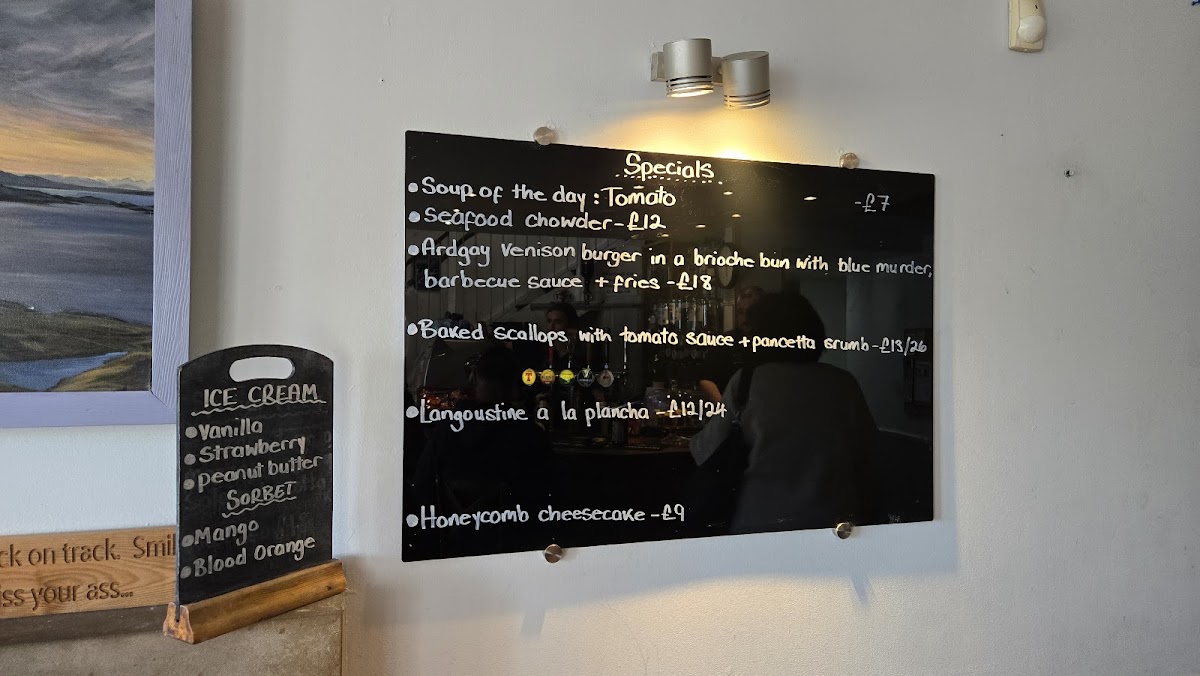 Specials
• Soup of the day : Tomato -£7
• Seafood chowder -£12
• Ardgay venison burger in a brioche bun with blue murder,
barbecue sauce + fries -£18
• Baked scallops with tomato sauce + pancetta crumb -£13/26
• Langoustine a la plancha -£12/24
• Honeycomb cheesecake -£9
ICE CREAM
• Vanilla
• Strawberry
• peanut butter
SORBET
• Mango
• Blood Orange
ck on track. Smil
iss your ass...